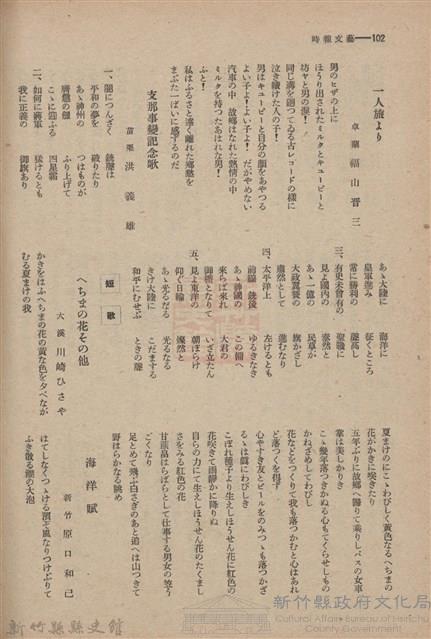 時報文藝——102
一人旅より
卓蘭 福山晋三
男のヒザの上に
ほうり出されたミルクとキューピーと
坊ヤと男の涙!
同じ溝を廻つてゐる古レコードの様に
泣き續けた人の子!
男はキューピーと自分の顔をあやつる
よい子よ!よい子よ! だがやめない
汽車の中 故鄉はなれた熱情の中
ミルクを持つたあはれな男!
ふと!
私はふるさと遠く離れた鄉愁を
まぶた一ぱいに感ずるのだ
支那事變記念歌
苗栗 洪義雄
一、闇につんざく 銃聲は
平和の夢を 破りたり
あゝ神州の つはものが
膺懲の劍 ふり上げて
こゝに迎ふる 四星霜
二、如何に蔣軍 猛けるとも
我に正義の 御旗あり
あゝ大陸に 海洋に
皇軍進み 征くところ
常に勝利の 凱高し
三、有史未曾有の 聖戰に
見よ國內の 泰然と
あゝ一億の 民草が
大政翼賛の 旗かざし
肅然として 進むなり
四、太平洋上 左けるとも
前線 銃後 ゆるぎなき
あゝ神國の この備へ
來らば來れ 大君の
御楯となりて いざ立たん
五、見よ東洋の 朝ぼらけ
仰ぐ日輪 燦然と
あゝ光るだる 光るなる
きけ大陸に こだまする
和平にむせぶ ときの聲
短歌
へちまの花その他
大溪 川崎ひさや
かきをはふへちまの花の黃な色を夕べなが
むる夏まけの我
夏まけのにこゝわびしく黃色なるへちまの
花がかきに咲きたり
五年ぶりに故鄉へ歸りて乘りしバスの女車
掌は美しかりき
こゝ幾年落つきかぬる心もてくらせしもの
かねざめしてわびし
花などをつくりて我も落つかむと心はあれ
ど落つくを得ず
心やすき友とビールをのみつゝも落つかざ
るゝは眞にわびしき
こぼれ種子より生えしほうせん花に紅色の
花咲きて雨靜かに降りぬ
自らの力にて生えしほうせん花のたくまし
さをみる紅色の花
甘蔗畠はらばらとして仕事する男女の笠う
ごくなり
足とめて飛ぶ白さぎのあと追へば山つきて
野はらかなる眺め
海洋賦
新竹 原口和己
はてしなくつゞける潤き風なりつけぶりて
ふき散る潮の大泡
新竹縣縣史館
新竹縣政府文化局
Cultural Affairs Bureau of Hsinchu
County Government